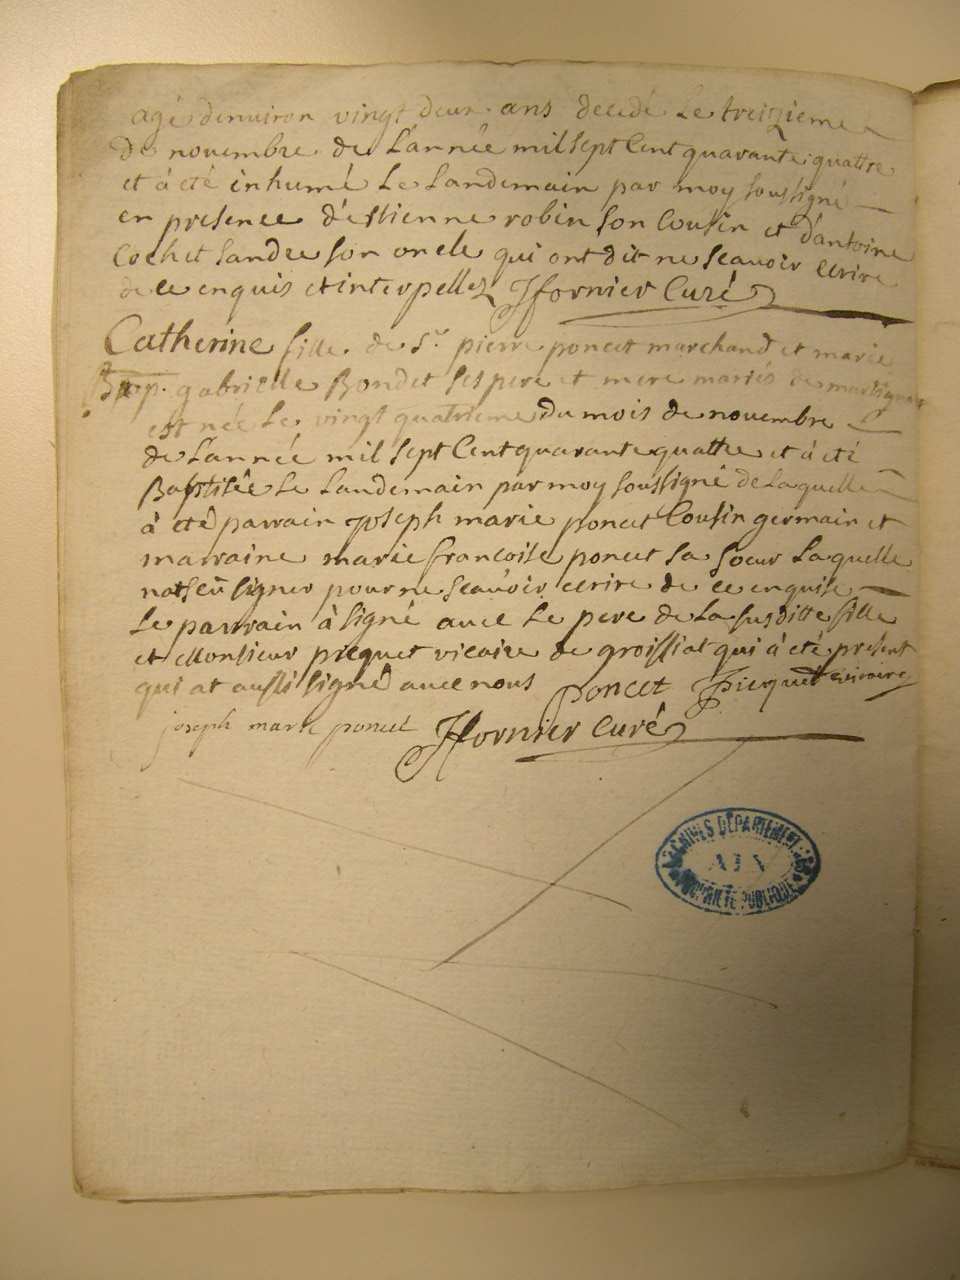 agé denuiron vingt deux ans decedé Le treizieme
de novembre de L'année mil sept Cent quarante quattre
et à été inhumé Le Landemain par moy soussigné
en presence d'estienne robin son Cousin et d'antoine
Cochet Landre son oncle qui ont dit ne scauoir ecrire
de ce enquis et interpellez Jfornier Curé
Catherine fille de Sr. pierre poncet marchand et marie
Bap. gabrielle Bondet ses pere et mere mariés de martignat
est née Le vingt quatrieme du mois de novembre
de L'année mil sept Cent quarante quattre et à été
Baptisée Le Landemain par moy soussigné de Laquelle
à été parrain joseph marie poncet Cousin germain et
marraine marie francoise poncet sa soeur Laquelle
signer pour ne scauoir ecrire de ce enquise
Le parrain à signé auec Le pere de La susditte fille
et Monsieur picquet vicaire de groissiat qui à été present
qui at aussi signé auec nous poncet Picquet vicaire
joseph marie poncet Jfornier curé
ARCHIVES DÉPARTEMENTALES
AIN
PROPRIÉTÉ PUBLIQUE